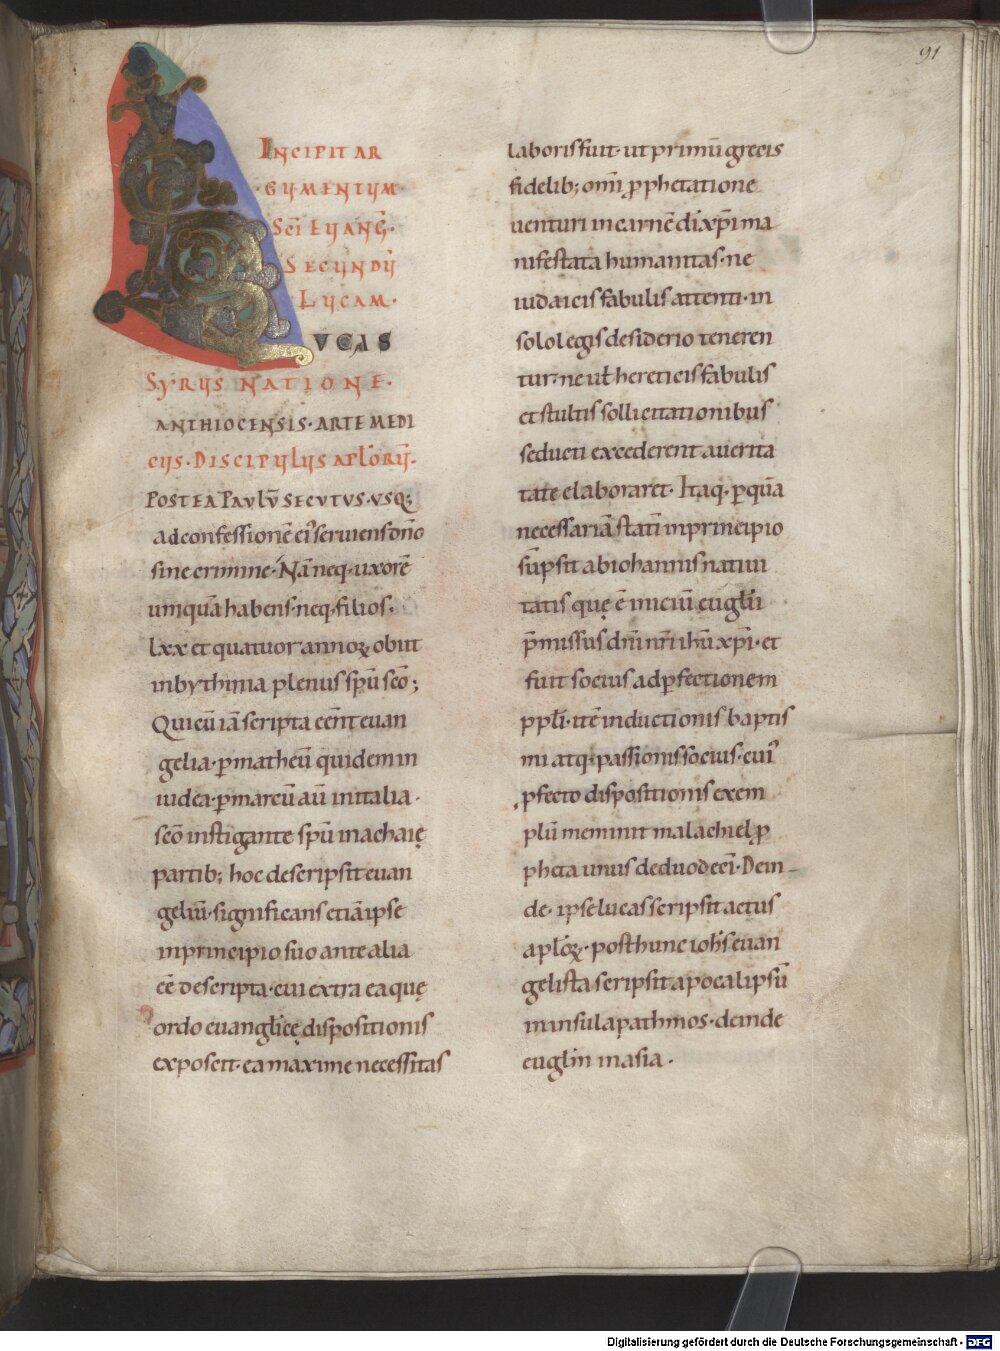 91
INCIPIT AR
GUMENTUM
SCI EUANG̅.
SECUNDU̅
LUCAM.
LUCAS
SYRUS NATIONE.
ANTHIOCENSIS. ARTE MEDI
CUS. DISCIPULUS APL̅ORU̅.
POSTEA PAULU̅ SECUTUS. USQ;
ad confessione̅ ei᾽ seruiens dn̅o
sine crimine. Na̅ neq. uxore̅
umqua̅ habens. neq. filios.
lxx et quatuor annoꝝ obiit
in bythinia plenus sp̅u sc̅o;
Qui cu̅ ia̅ scripta ee̅nt euan
gelia. p̅ matheu̅ quidem in
iudea. p̅ marcu̅ au̅ in italia.
sc̅o instigante sp̅u in achaię
partib; hoc descripsit euan
geliu̅. significans etia̅ ipse
in principio suo ante alia
ee̅ descripta. cui extra ea quę
ordo euangl̅icę dispositionis
exposcit. ea maxime necessitas
laboris fuit. ut primu̅ grecis
fidelib; omi̅ ꝓphetatione
uenturi in carne̅ di̅ xp̅i ma
nifestata humanitas. ne
iudaicis fabulis attenti. in
solo legis desiderio teneren
tur. ne ul̅ hereticis fabulis
et stultis sollicitationibus
seducti excederent a uerita
tate elaboraret. Itaq. p̅qua̅
necessaria̅ stati̅ in principio
su̅psit ab iohannis natiui
tatis quę e̅ iniciu̅ eugl̅ii
p̅missus dn̅i nr̅i ihu̅ xp̅i. et
fuit socius ad p̅fectionem
ppl̅i. ite̅ inductionis baptis
mi atq. passionis socius. cui᾽
p̅fecto dispositionis exem
plu̅ meminit malachiel ꝓ
pheta unus de duodeci̅. Dein_
de. ipse lucas scripsit actus
apl̅oꝝ. post hunc ioh̅s euan
gelista scripsit apocalipsu̅
in insula pathmos. deinde
eugl̅m in asia.
Digitalisierung gefördert durch die Deutsche Forschungsgemeinschaft - DFG